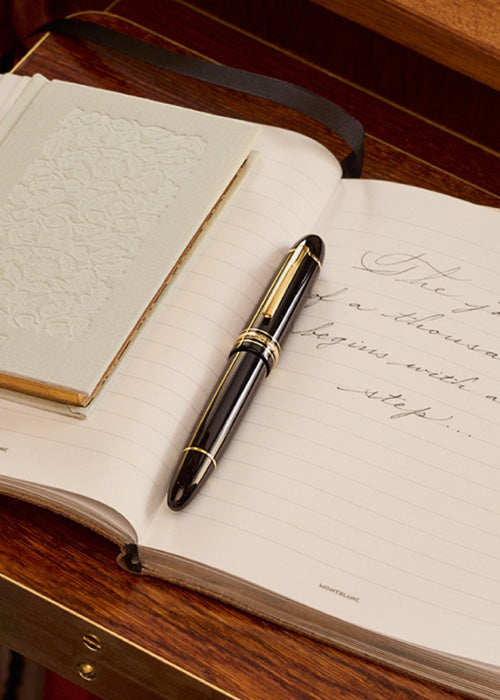 The
of a thousa
begins with a
step...
MONTBLANC